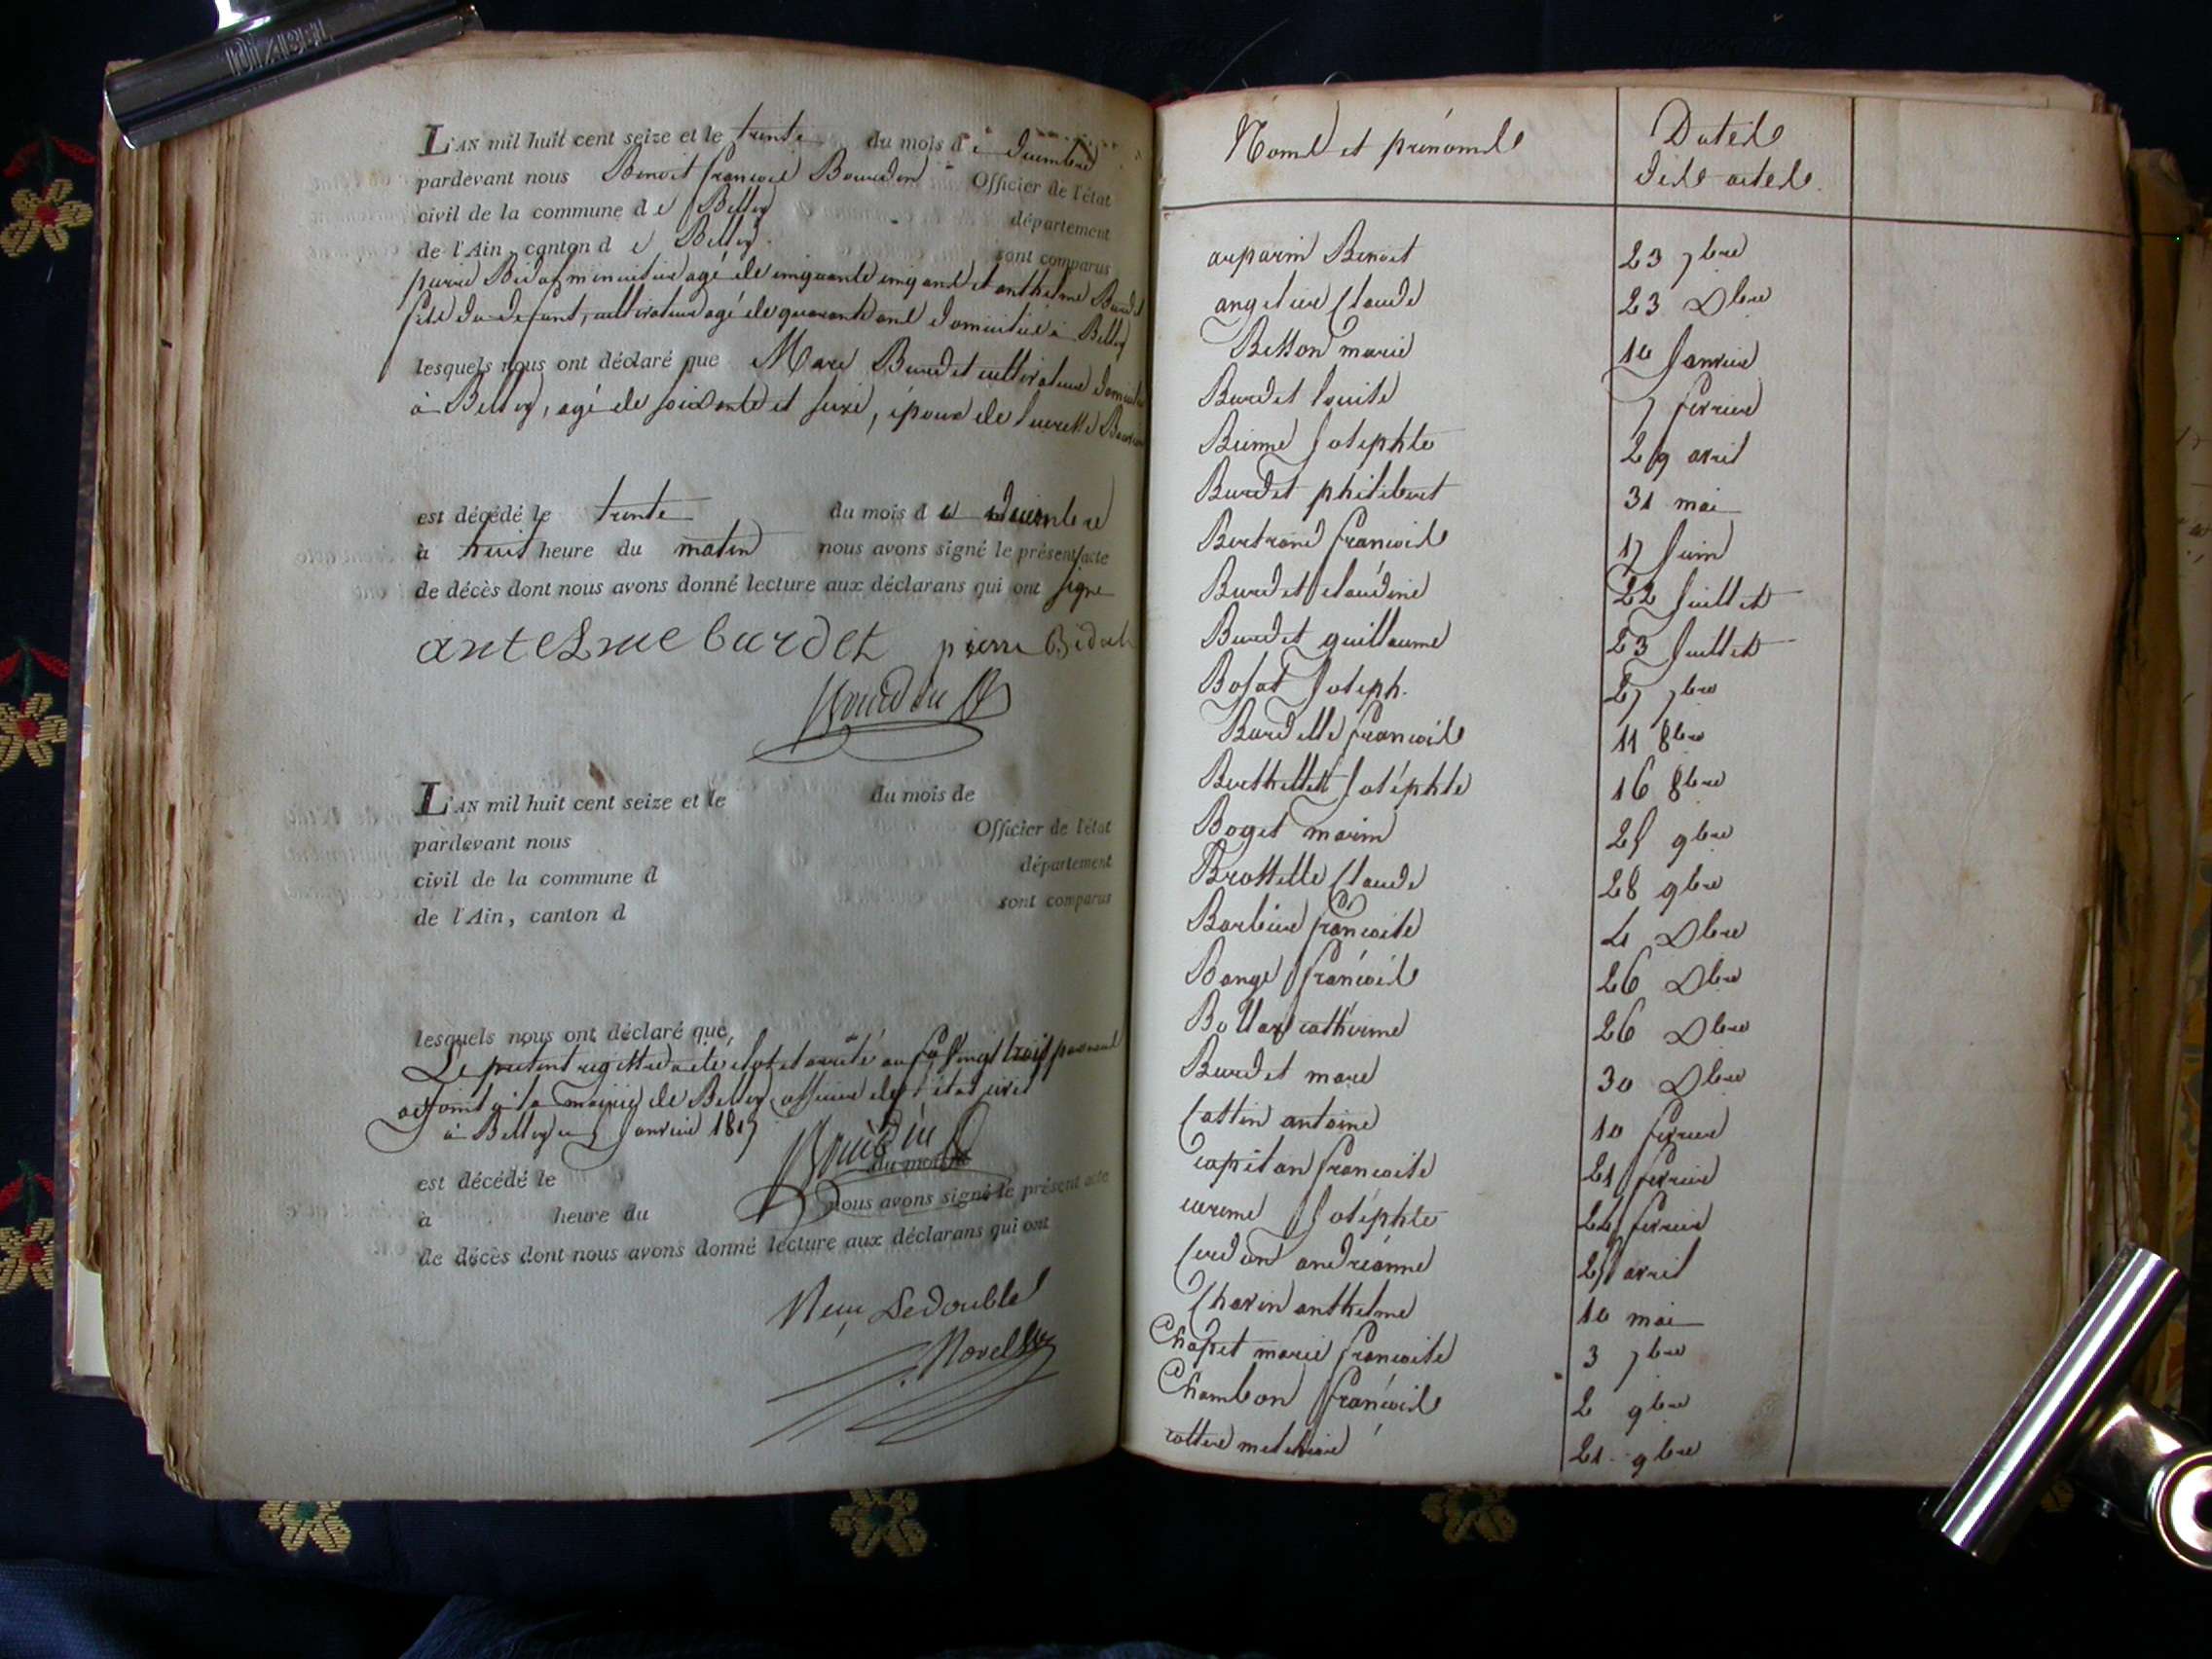 DIZABEL
L'AN mil huit cent seize et le trente du mois de decembre
pardevant nous Benoit françois Bourdin Officier de l'état
civil de la commune de Belley département
de l'Ain, canton de Belley sont comparus
pierre Bidat menuisier agé de cinquante cinq ans et anthelme Burdet
fils du defunt, cultivateur agé de quarante ans domiciliés à Belley
lesquels nous ont déclaré que Marc Burdet cultivateur domicilié
à Belley, agé de soixante et seize, époux de
est décédé le trente du mois de decembre
à huit heure du matin nous avons signé le présent acte
de décès dont nous avons donné lecture aux déclarans qui ont signé
antelme burdet pierre Bidat
Bourdin
L'AN mil huit cent seize et le du mois de
pardevant nous Officier de l'état
civil de la commune d département
de l'Ain, canton d sont comparus
lesquels nous ont déclaré que,
Le présent registre a été clos et arrêté au par nous
adjoint à la mairie de Belley officier de l'état civil
à Belley janvier 1817
Bourdin
est décédé le du mois
à heure du nous avons signé le présent acte
de décès dont nous avons donné lecture aux déclarans qui ont
Ledouble
Morel
Noms et prénoms Dates
des actes
arparin Benoit 23 7bre
angelier Claude 23 Dbre
Besson marie 10 Janvier
Burdet louise 7 fevrier
Josephte 29 avril
Burdet philibert 31 mai
Bertrand françois 17 Juin
Burdet claudine 22 Juillet
Burdet guillaume 23 Juillet
Bosat Joseph. 27 7bre
Burdelle françois 11 8bre
Berthellet Joséphte 16 8bre
Boget marin 25 9bre
Brottelle Claude 28 9bre
Barbier françoise Dbre
Bange françois 26 Dbre
catherine 26 Dbre
Burdet marc 30 Dbre
Cattin antoine 10 fevrier
capitan françoise 21 fevrier
carme Joséphte fevrier
Cerdon andréanne avril
Chavin anthelme 10 mai
Chapet marie françoise 3 7bre
Chambon françois 2 9bre
21 9bre